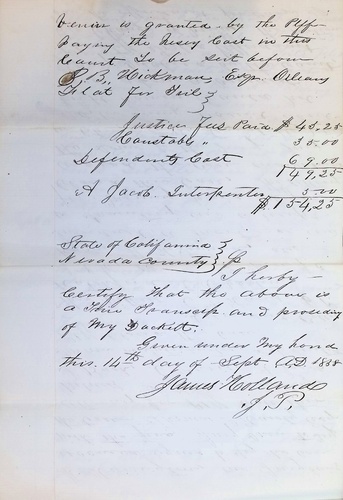 Venue is granted by the Plff
Paying the Nesery Cost in this
Court To be Sert before
P. B. Hickman Esqr Orleans
Flat for Tril }
Justices Fees Paid $ 45,25
Constable " 35.00
Defendents Cost 69.00
149,25
A Jacob. Interpenter 5.00
$154,25
State of California }
Nevada County } ss
I herby
Certify That the above is
a True Transcip and proceding
of My Dockett.
Given under My hand
this. 14th day of Sept A.D. 1858
James Holland
J.P.